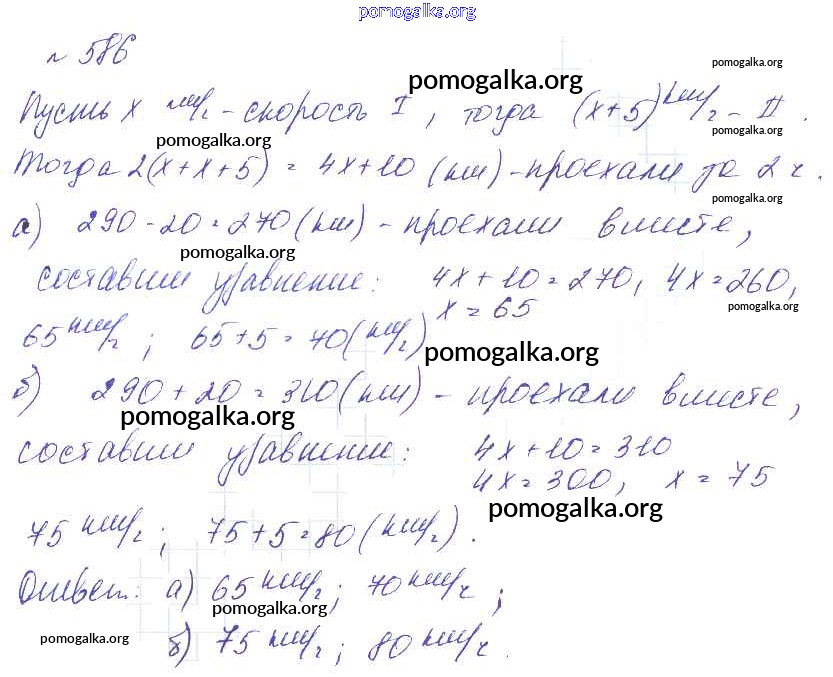 pomogalka.org
№ 586
pomogalka.org
pomogalka.org
Пусть х км/ч - скорость I, тогда (х+5) км/ч - II.
pomogalka.org
pomogalka.org
Тогда 2(х+х+5) = 4х+10 (км) - проехали за 2 ч.
pomogalka.org
а) 290-20=270(км) - проехали вместе,
pomogalka.org
составим уравнение: 4х+10=270, 4х=260,
х=65
pomogalka.org
65 км/ч; 65+5=70(км/ч)
pomogalka.org
б) 290+20=310(км) - проехали вместе,
pomogalka.org
составим уравнение: 4х+10=310
4х=300, х=75
pomogalka.org
75 км/ч; 75+5=80(км/ч).
Ответ: а) 65 км/ч; 70 км/ч;
pomogalka.org
pomogalka.org
б) 75 км/ч; 80 км/ч.